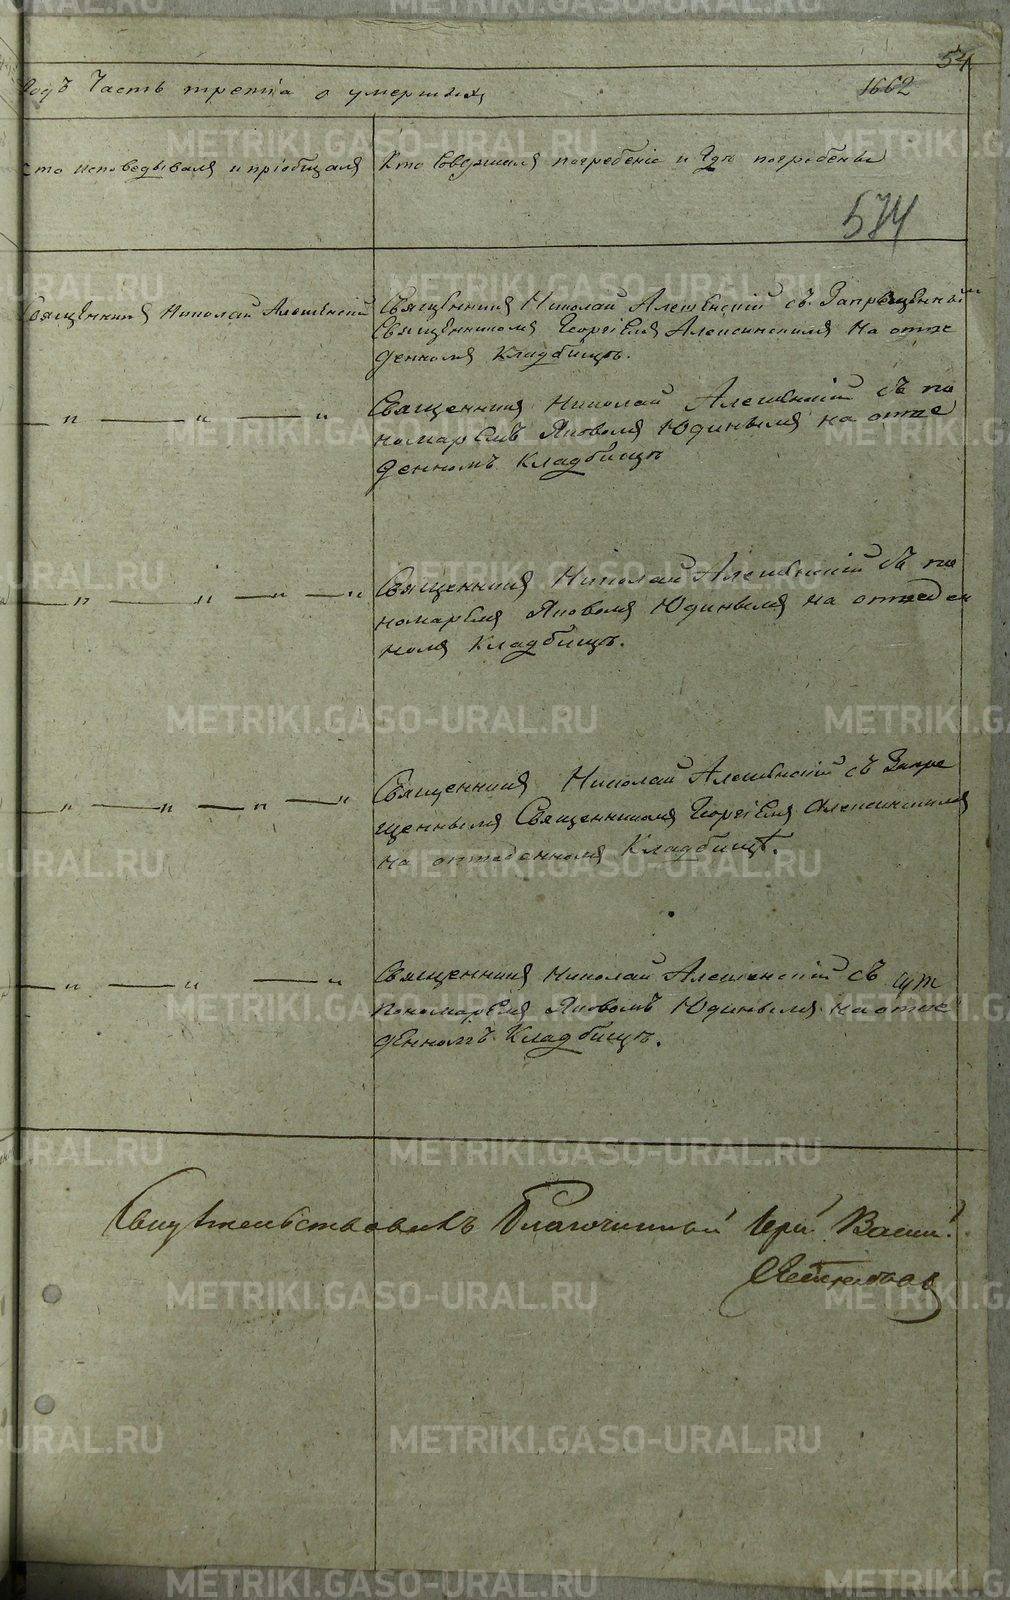 54
годъ Часть третiа о умершихъ
1662
кто исповедывалъ и прiобщалъ
Кто Совершалъ погребенiе и Гдѣ погребены
574
Священникъ Николай
Священникъ Николай съ Запрещеннымъ
Священникомъ Георгiемъ Алексинскимъ На отве
денномъ Кладбищѣ.
— " — " — "
Священникъ Николай съ по
номаремъ Яковомъ Юдинымъ на отве
денномъ Кладбищѣ
— " — " — " — "
Священникъ Николай съ по
номаремъ Яковомъ Юдинымъ на отведен
номъ Кладбищѣ.
— " — " — " — "
Священникъ Николай съ Запре
щеннымъ Священникомъ Георгiемъ Алексинскимъ
на отведенномъ Кладбищѣ.
— " — " — "
Священникъ Николай съ
пономаремъ Яковомъ Юдинымъ на отве
денномъ Кладбищѣ.
Свидѣтельствовалъ Благочинный Iерей Васил.
METRIKI.GASO-URAL.RU